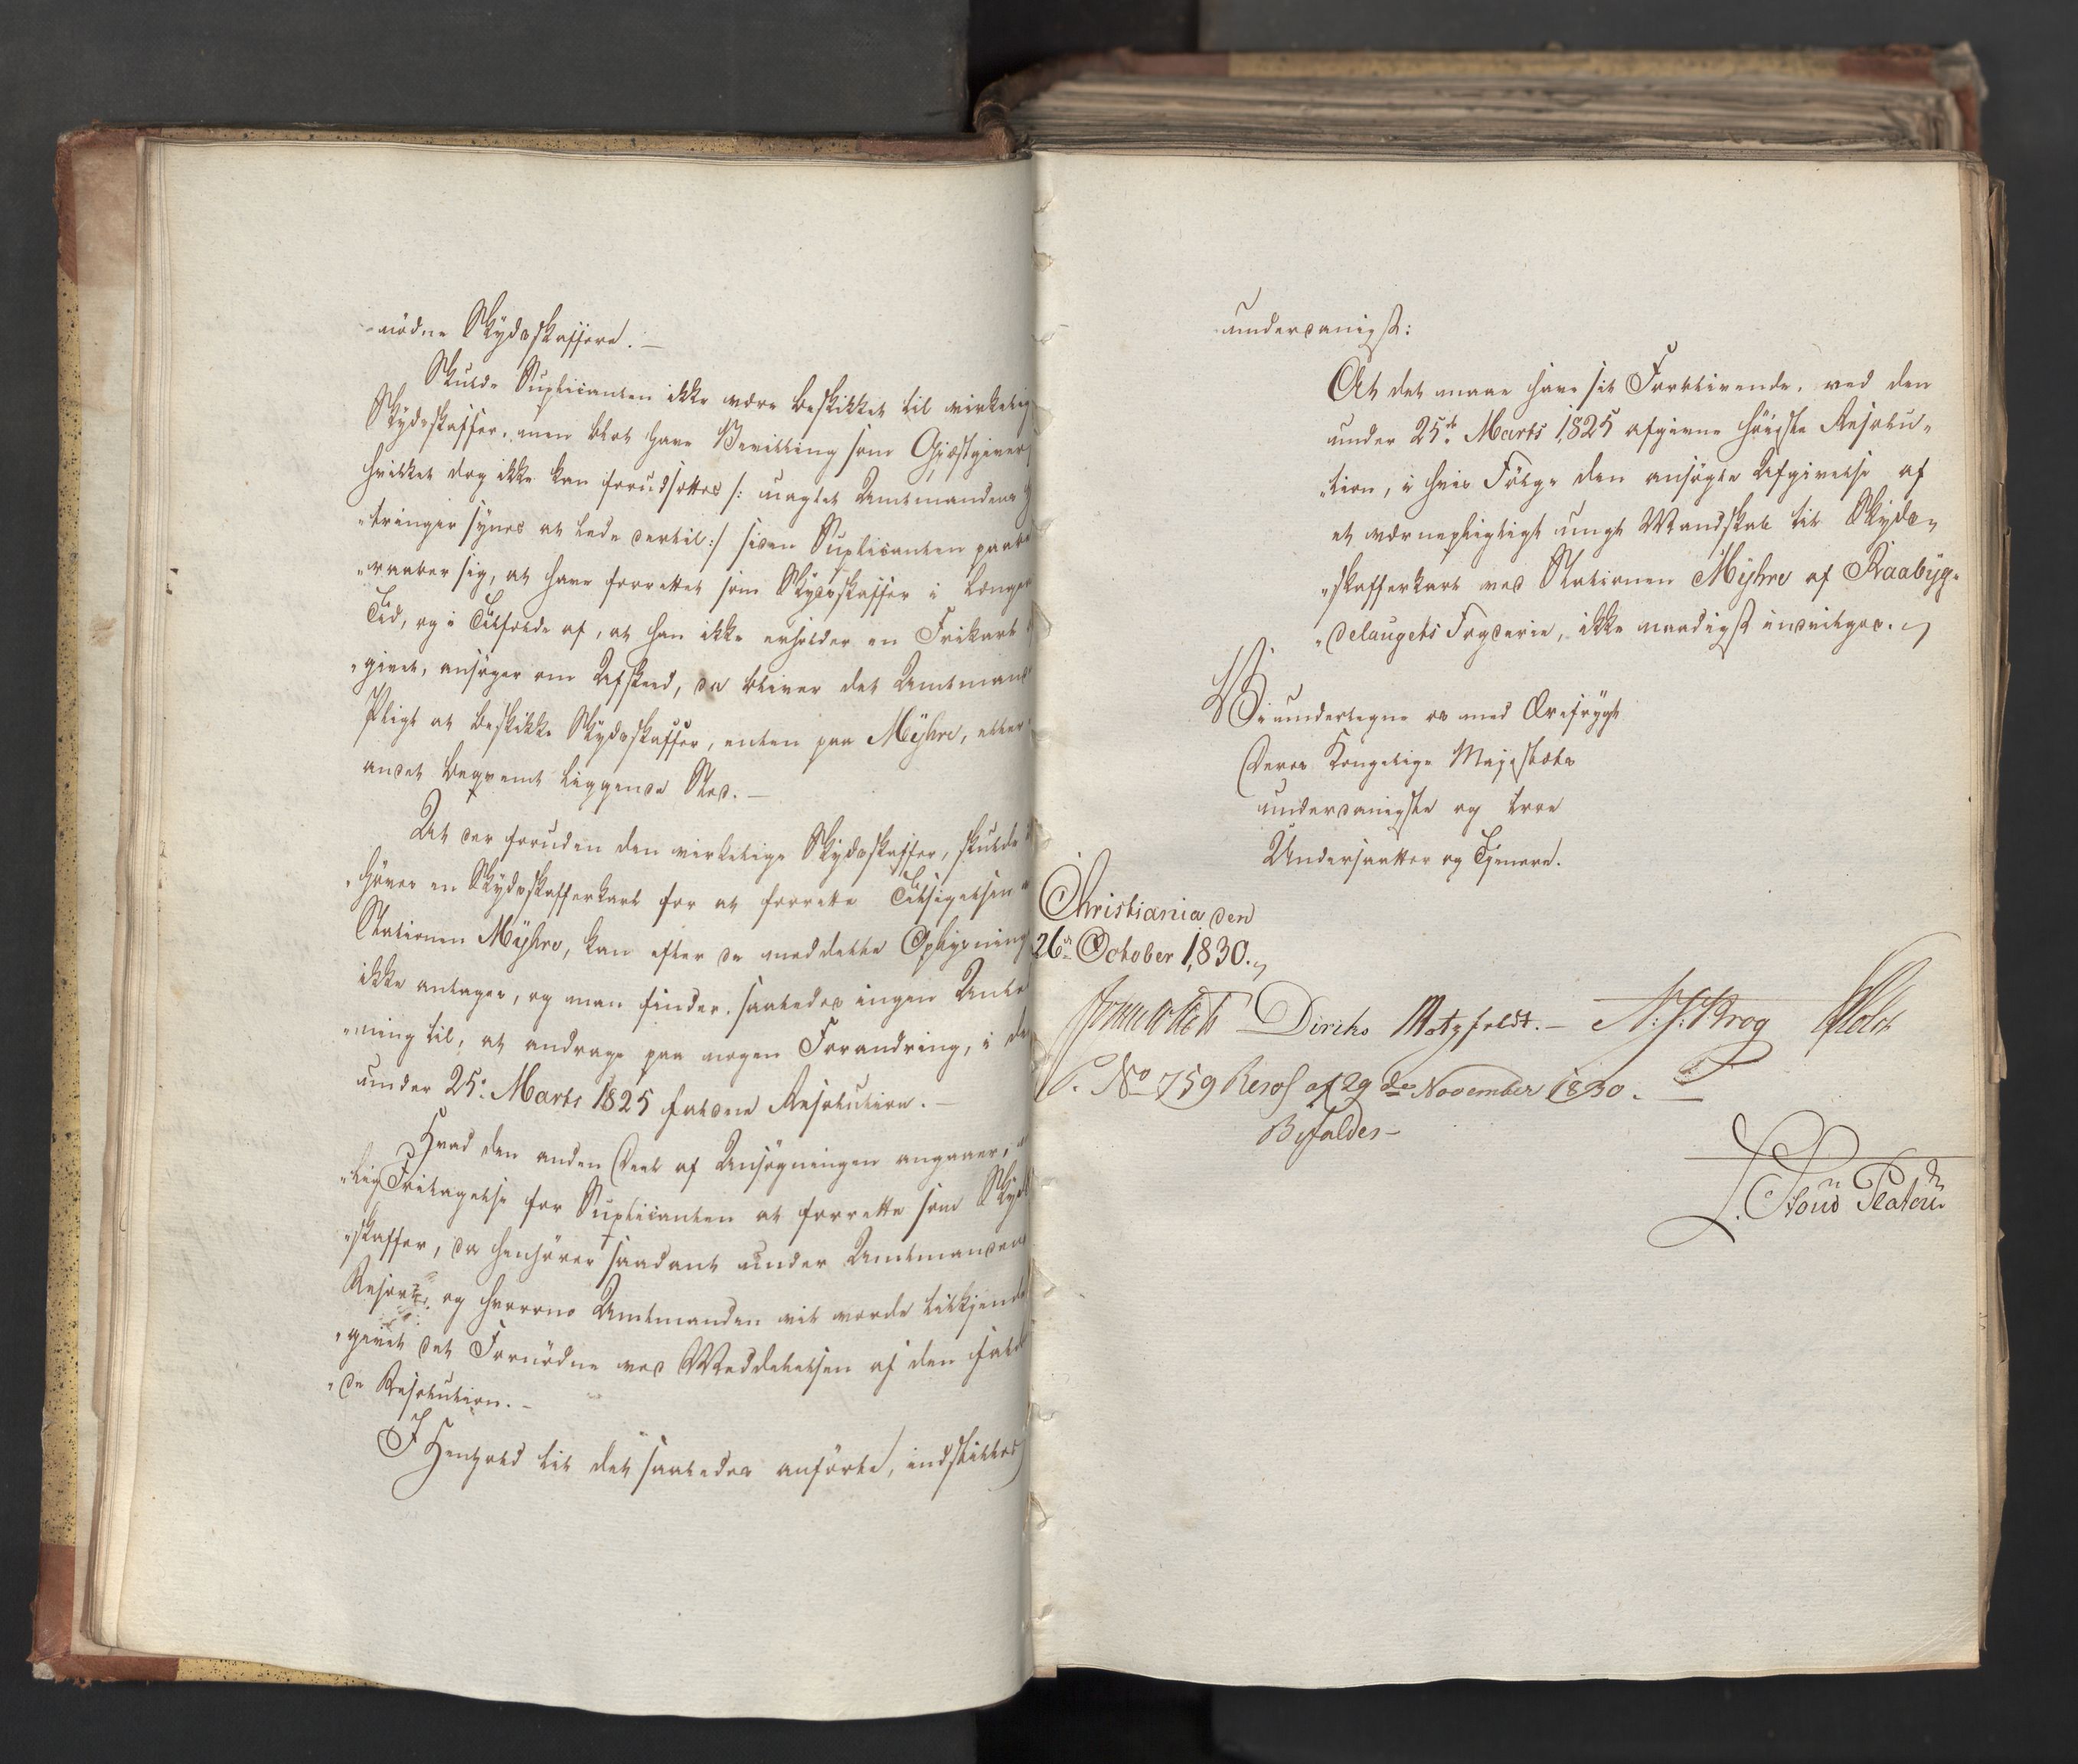 nödne Skydsskaffere. —
Skulde Suplicanten ikke være beskikket til virkelig
Skydsskaffer, men blot have Bevilling som Gjæstgiver
hvilket dog ikke kan forudsættes /: uagtet Amtmandens
„tringer synes at lede dertil :/ siden Suplicanten paabe
„raaber sig, at have forrettet som Skydsskaffer i længer
Tid, og i Tilfælde af, at han ikke erholder en Frikarl
„givet, ansøger om Afskeed, da bliver det Amtmand
Pligt at beskikke Skydsskaffer, enten paa Mÿhre, eller
andet beqvemt liggende Sted. —
At der foruden den virkelige Skydsskaffer, skulde
„höves en Skydsskafferkarl for at forrette Tilsigelsen
Stationen Mÿhre, kan efter de meddeelte Oplysning
ikke antages, og man finder saaledes ingen Anle
„ning til, at andrage paa nogen Forandring, i de
under 25: Marts 1825 faldne Resolution. —
Hvad den anden Deel af Ansøgningen angaaer,
„lig Fritagelse for Suplicanten at forrette som Skyds
„skaffer, da henhörer saadant under Amtmanden
Resort, og hvorom Amtmanden vil vorde tilkjende
„givet det Fornödne ved Meddelelsen af den fald
„de Resolution. —
I Henhold til det saaledes anförte, indstilles
underdanigst:
At det maae have sit Forblivende, ved den
under 25de Marts 1825 afgivne höieste Resolu„
„tion, i hvis Fölge den ansögte Afgivelse af
et værnepligtigt ungt Mandskab til Skyds„
„skafferkarl ved Stationen Mÿhre af Raabyg„
„delaugets Fogderie, ikke naadigst indvilges.
Vi undertegne os med Ærefrygt
Deres Kongelige Majestæts
underdanigste og troe
Undersaatter og Tjenere.
Christiania den
26de October 1830.
Diriks Motzfeldt. — N: J: Krog Holst
P. No 759 Resol af 29de November 1830. —
Bifaldes —